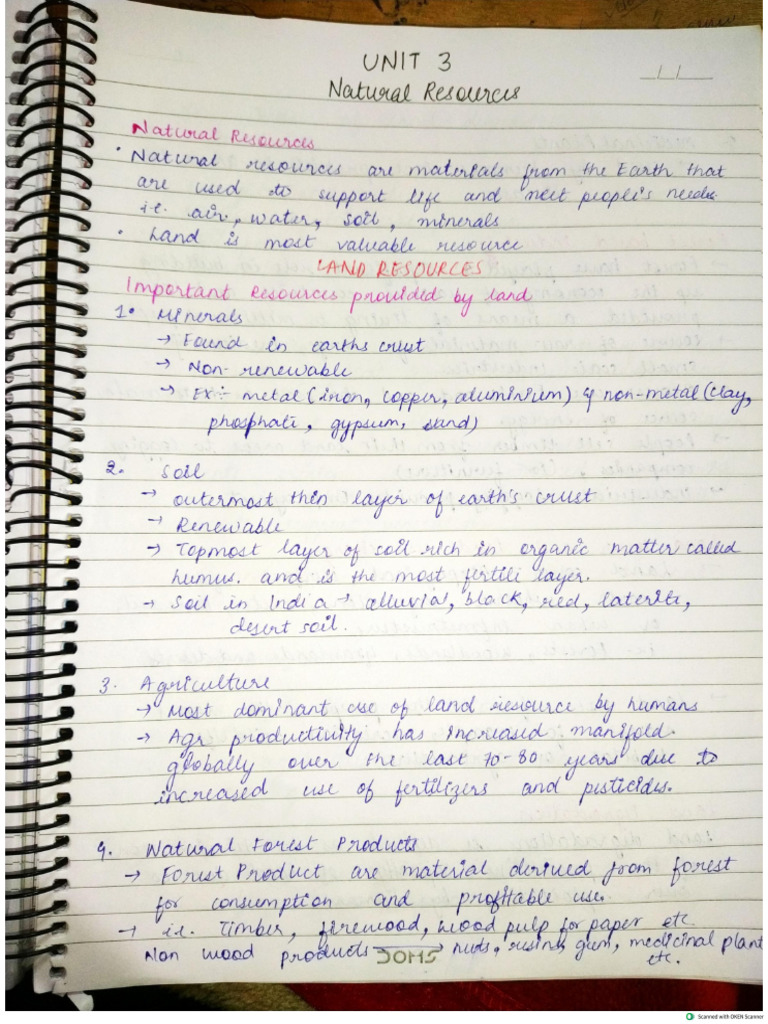 UNIT 3
_/_/___
Natural Resources
Natural Resources
• Natural resources are materials from the Earth that
are used to support life and meet people's needs
i.e. air, water, soil, minerals
• Land is most valuable resource
LAND RESOURCES
Important Resources provided by land
1. Minerals
→ Found in earths crust
→ Non-renewable
→ Ex:- metal (iron, copper, aluminium) & non-metal (clay,
phosphate, gypsum, sand)
2. Soil
→ outermost thin layer of earth's crust
→ Renewable
→ Topmost layer of soil rich in organic matter called
humus. and is the most fertile layer.
→ Soil in India → alluvial, black, red, laterite,
desert soil.
3. Agriculture
→ Most dominant use of land resource by humans
→ Agr productivity has increased manifold.
globally over the last 70-80 years due to
increased use of fertilizers and pesticides.
4. Natural Forest Products
→ Forest Product are material derived from forest
for consumption and profitable use.
→ i.e. Timber, firewood, wood pulp for paper etc.
Non wood products → nuts, resins, gum, medicinal plant
etc.
DOMS
Scanned with OKEN Scanner